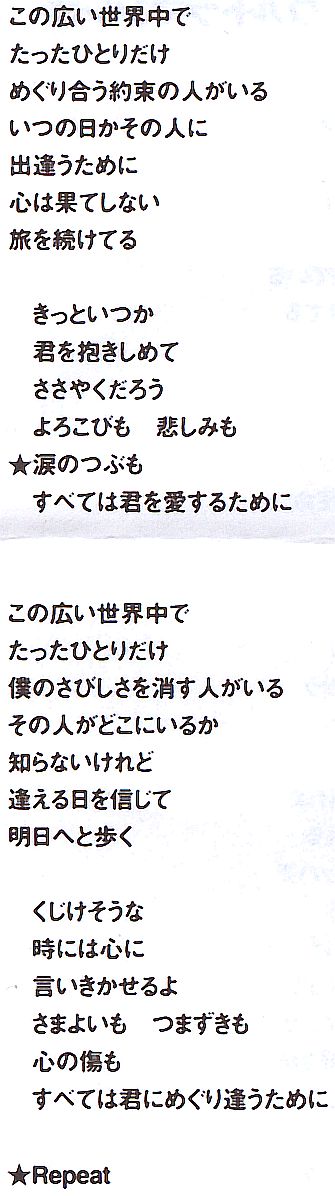 この広い世界中で
たったひとりだけ
めぐり合う約束の人がいる
いつの日かその人に
出逢うために
心は果てしない
旅を続けてる
きっといつか
君を抱きしめて
ささやくだろう
よろこびも　悲しみも
★涙のつぶも
すべては君を愛するために
この広い世界中で
たったひとりだけ
僕のさびしさを消す人がいる
その人がどこにいるか
知らないけれど
逢える日を信じて
明日へと歩く
くじけそうな
時には心に
言いきかせるよ
さまよいも　つまずきも
心の傷も
すべては君にめぐり逢うために
★Repeat